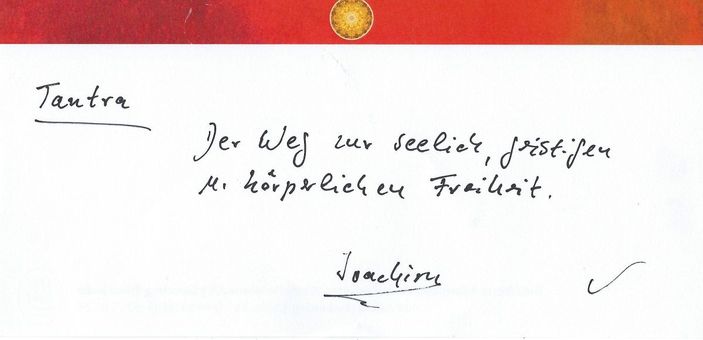 Tantra
Der Weg zur seelich, geistigen
u. körperlichen Freiheit.
Joachim